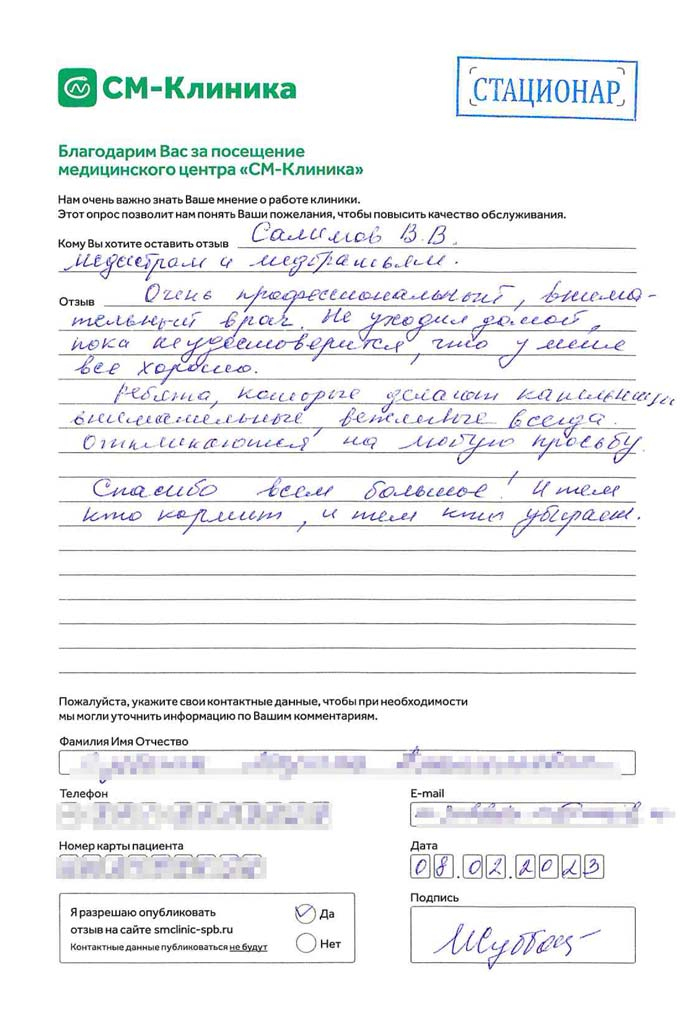 СМ-Клиника
СТАЦИОНАР
Благодарим Вас за посещение
медицинского центра «СМ-Клиника»
Нам очень важно знать Ваше мнение о работе клиники.
Этот опрос позволит нам понять Ваши пожелания, чтобы повысить качество обслуживания.
Кому Вы хотите оставить отзыв Салимов В.В.
медсестрам и медбратьям.
Отзыв Очень профессиональный, внима-
тельный врач. Не уходил домой,
пока не удостоверился, что у меня
все хорошо.
Ребята, которые делают капельницы
внимательные, вежливые всегда.
Откликаются на любую просьбу.
Спасибо всем большое! И тем
кто кормит, и тем кто убирает.
Пожалуйста, укажите свои контактные данные, чтобы при необходимости
мы могли уточнить информацию по Вашим комментариям.
Фамилия Имя Отчество
Телефон
E-mail
Номер карты пациента
Дата
08.02.2023
Я разрешаю опубликовать
отзыв на сайте smclinic-spb.ru
Контактные данные публиковаться не будут
Да
Нет
Подпись